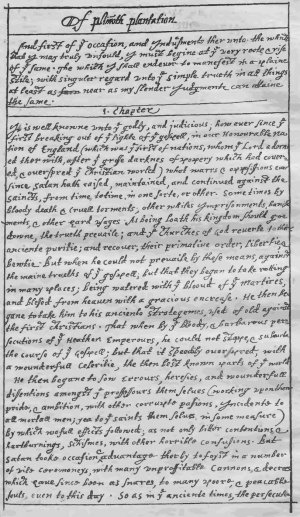 Of plimoth plantation
And first of yᵉ occasion, and Indusments ther unto; the which
that I may truly unfould, I must begine at yᵉ very roote & rise
of yᵉ same. The which I shall endevor to manefest in a plaine
stile; with singuler regard unto yᵉ simple trueth in all things,
at least as farr near as my slender Judgmente can attaine
the same.
1. Chapter
It is well knowne unto yᵉ godly, and judicious, how ever since yᵉ
first breaking out of yᵉ lighte of yᵉ gospell, in our Honourable Na-
tion of England (which was yᵉ first of nations, whom yᵉ Lord adorn-
ed ther with, affter yᵉ grosse darknes of popery which had cover-
ed, & overspred yᵉ christian world) what warrs, & opposissions ever
since satan hath raised, maintained, and continued against the
saincts, from time, to time, in one sorte, or other. Some times by
bloody death & cruell torments, other whiles imprisonments, banish-
ments, & other hard usages. As being loath his kingdom should goe
downe, the trueth prevaile; and yᵉ churches of god reverte to their
anciente puritie; and recover, their primative order, libertie, &
bewtie. But when he could not prevaile by these means, against
the maine trueths of yᵉ gospell, but that they began to take rooting
in many places; being watered with yᵉ blooud of yᵉ martires,
and blessed from heaven with a gracious encrease. He then be-
gane to take him to his anciente strategemes, used of old against
the first christians. That when by yᵉ bloody, & barbarous per-
secutions of yᵉ Heathen Emperours, he could not stoppe, & subuerte
the course of yᵉ gospell; but that it speedily overspred, with
a wounderfull celeritie, the then best known parts of yᵉ world.
He then begane to sow errours, heresies, and wounderfull
disentions amongst yᵉ professours them selves (working upon their
pride, & ambition, with other corrupte passions, Incidente to
all mortall men; yea to yᵉ saints them selves in some measure)
by which wofull effects followed; as not only bitter contentions, &
hartburnings, schismes, with other horrible confusions. But
satan tooke occasion & advantage therby to foyst in a number
of vile ceremoneys, with many unproffitable cannons, & decrees
which have since been as snares, to many poore, & peaceable
souls, even to this day. So as in yᵉ anciente times, the persecuti-